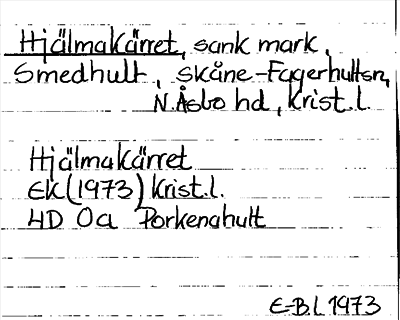 Hjälmakärret, sank mark,
Smedhult, Skåne-Fagerhultsn,
N.Åsbo hd, Krist.l.
Hjälmakärret
EK(1973) Krist.l.
4D 0a Porkenahult
E-B.L 1973